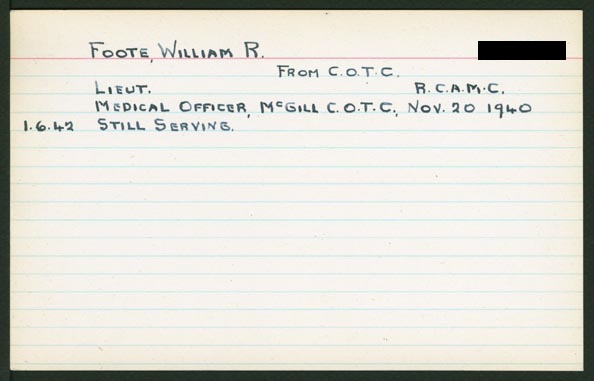 FOOTE, WILLIAM R.
FROM C.O.T.C.
LIEUT. R.C.A.M.C.
MEDICAL OFFICER, McGILL C.O.T.C., NOV. 20 1940
1.6.42 STILL SERVING.